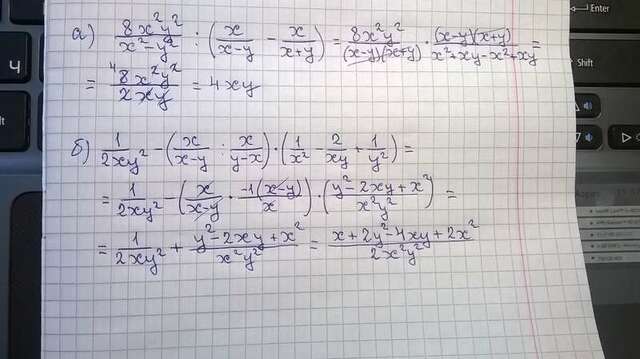 а) 8x²y²/(x²-y²) : (x/(x-y) - x/(x+y)) = 8x²y²/((x-y)(x+y)) · (x-y)(x+y)/(x²+xy-x²+xy) =
= ⁴8x²y²/2xy = 4xy
б) 1/2xy² - (x/(x-y) : x/(y-x)) · (1/x² - 2/xy + 1/y²) =
= 1/2xy² - (x/(x-y) · -1(x-y)/x) · ((y²-2xy+x²)/x²y²) =
= 1/2xy² + (y²-2xy+x²)/x²y² = (x+2y²-4xy+2x²)/2x²y²
Ч
Enter
Shift
Ctrl